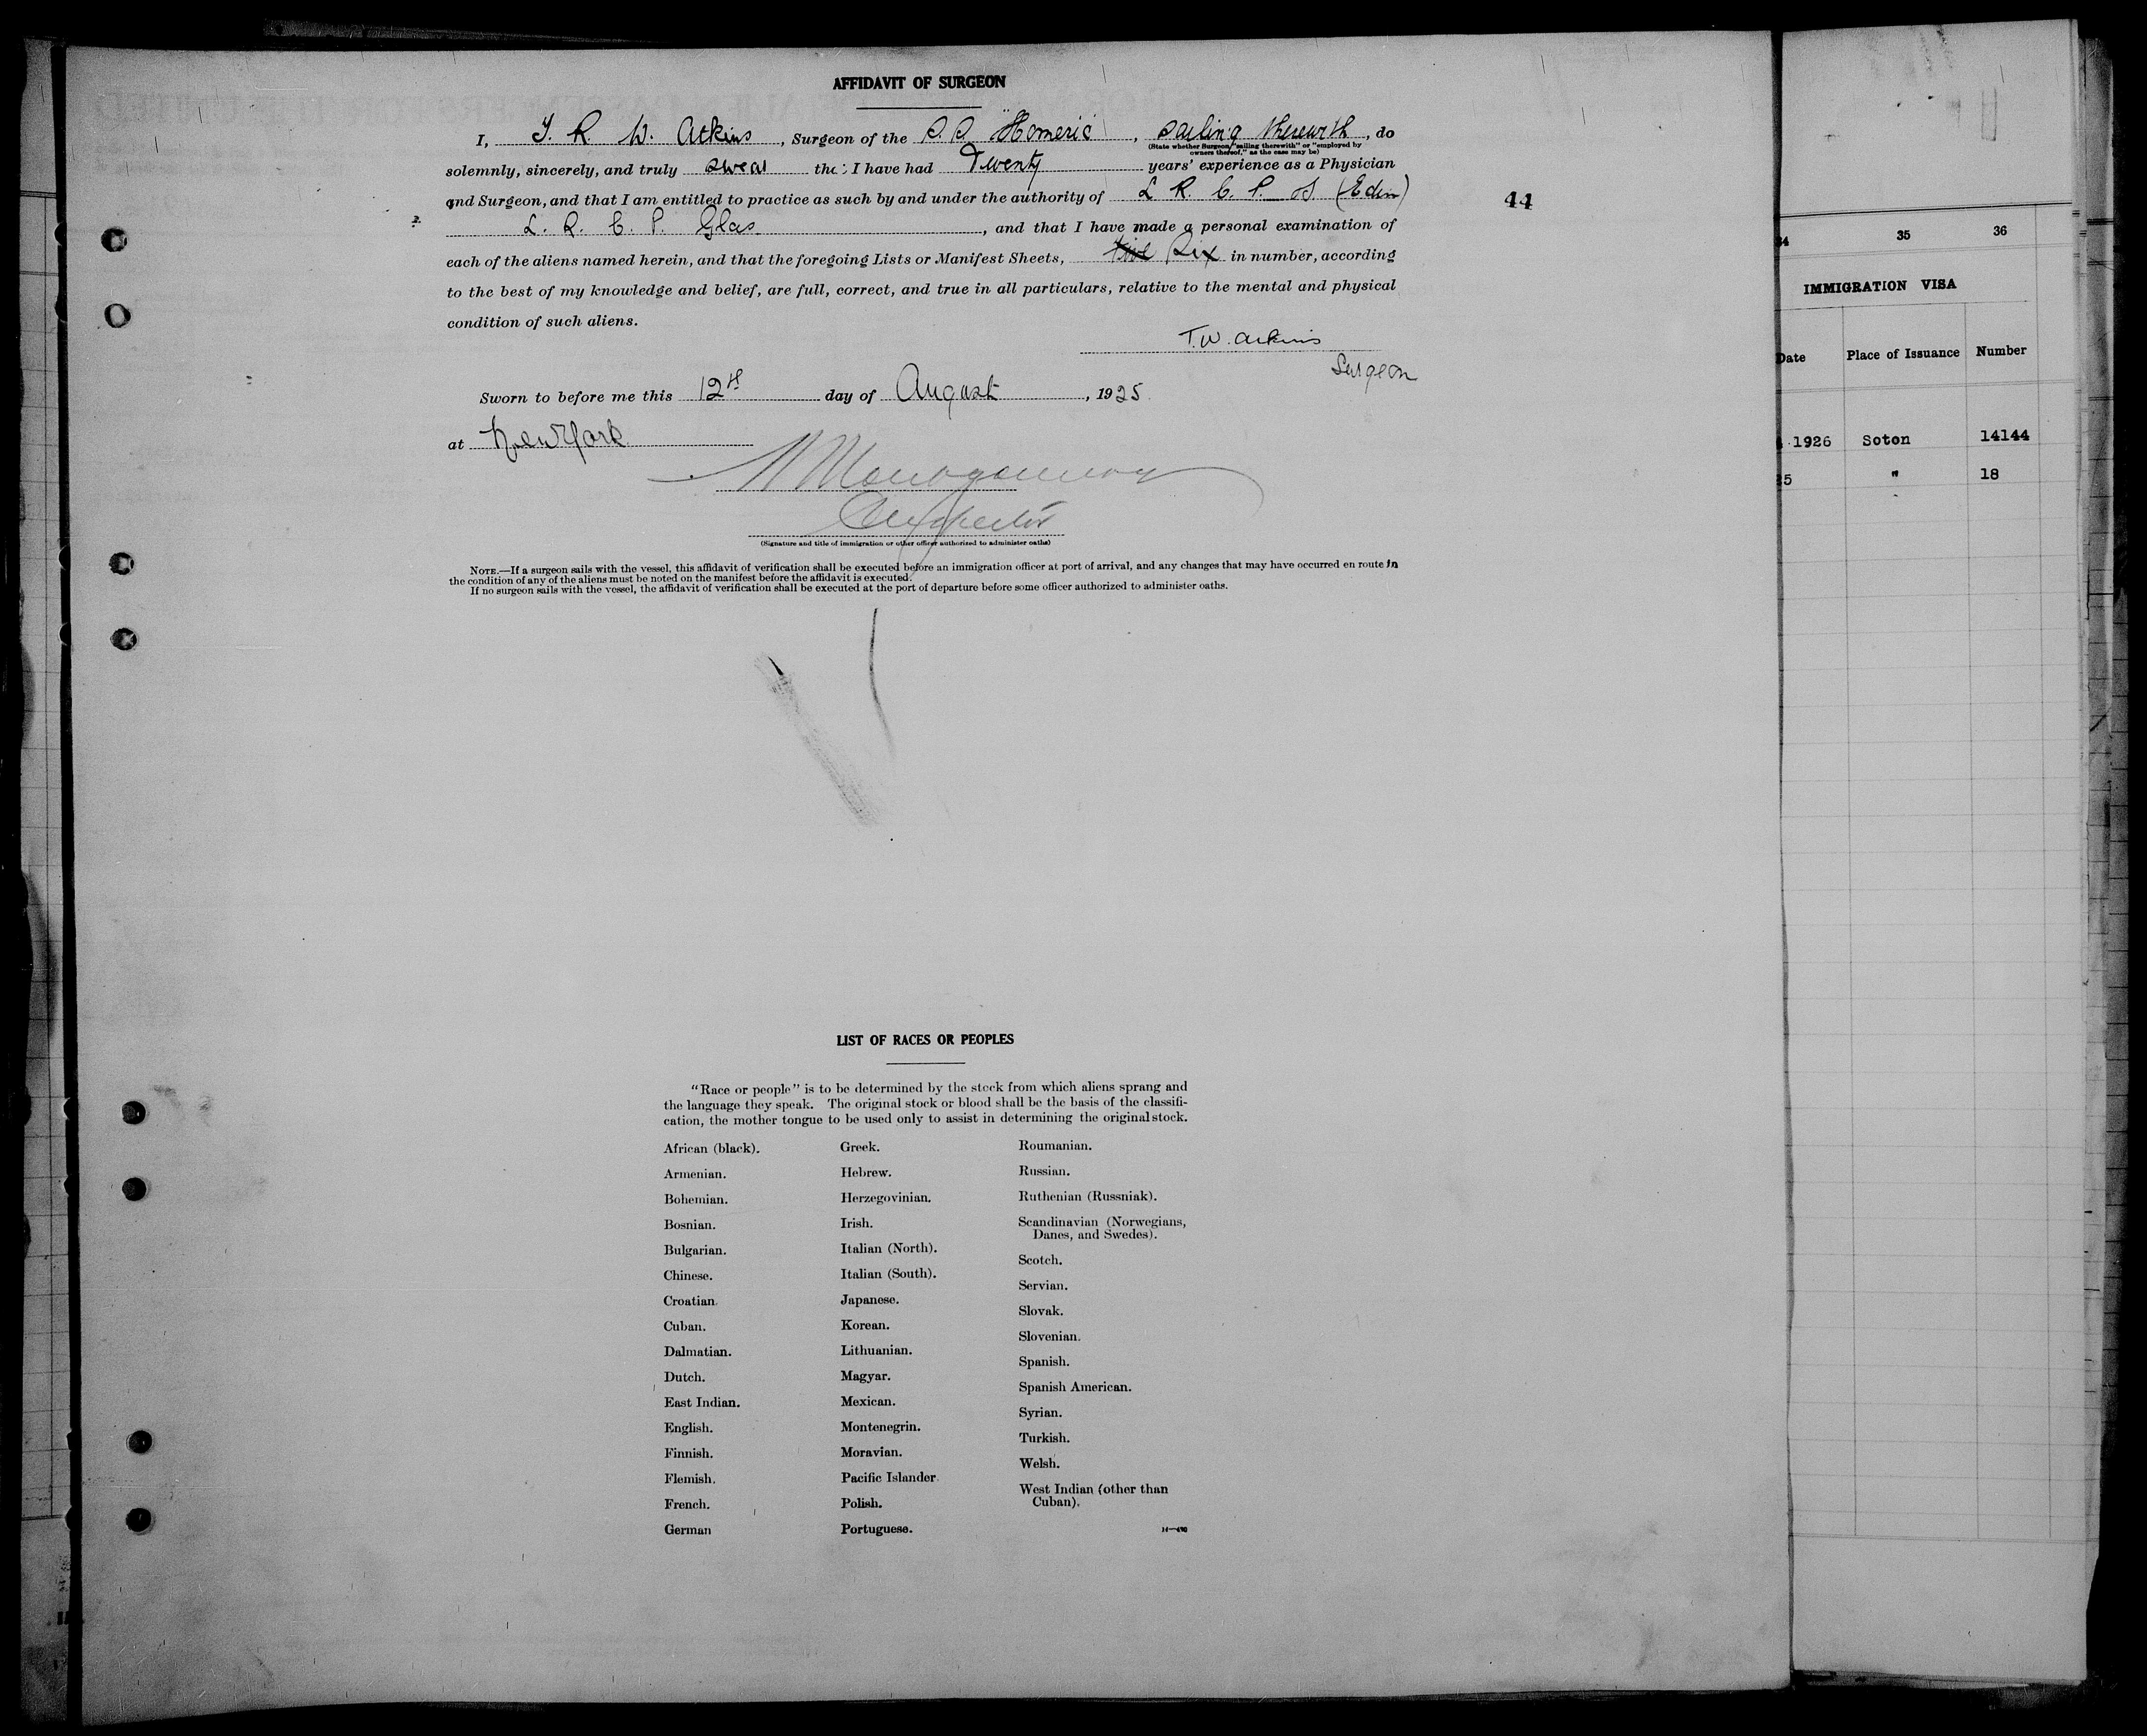 AFFIDAVIT OF SURGEON
I, T. R. W. Atkins, Surgeon of the S.S. "Homeric", Sailing therewith, do
(State whether Surgeon "sailing therewith" or "employed by
owners thereof," as the case may be)
solemnly, sincerely, and truly swear that I have had Twenty years' experience as a Physician
and Surgeon, and that I am entitled to practice as such by and under the authority of L R C P S (Edin)
44
L. R. C. P. Glas, and that I have made a personal examination of
each of the aliens named herein, and that the foregoing Lists or Manifest Sheets, Six in number, according
to the best of my knowledge and belief, are full, correct, and true in all particulars, relative to the mental and physical
condition of such aliens.
T.W. Atkins
Surgeon
Sworn to before me this 12th day of August, 1925.
at New York
Montgomery
Inspector
(Signature and title of immigration or other officer authorized to administer oaths)
NOTE.—If a surgeon sails with the vessel, this affidavit of verification shall be executed before an immigration officer at port of arrival, and any changes that may have occurred en route in
the condition of any of the aliens must be noted on the manifest before the affidavit is executed.
If no surgeon sails with the vessel, the affidavit of verification shall be executed at the port of departure before some officer authorized to administer oaths.
LIST OF RACES OR PEOPLES
"Race or people" is to be determined by the stock from which aliens sprang and
the language they speak. The original stock or blood shall be the basis of the classifi-
cation, the mother tongue to be used only to assist in determining the original stock.
African (black).
Armenian.
Bohemian.
Bosnian.
Bulgarian.
Chinese.
Croatian.
Cuban.
Dalmatian.
Dutch.
East Indian.
English.
Finnish.
Flemish.
French.
German
Greek.
Hebrew.
Herzegovinian.
Irish.
Italian (North).
Italian (South).
Japanese.
Korean.
Lithuanian.
Magyar.
Mexican.
Montenegrin.
Moravian.
Pacific Islander.
Polish.
Portuguese.
Roumanian.
Russian.
Ruthenian (Russniak).
Scandinavian (Norwegians,
Danes, and Swedes).
Scotch.
Servian.
Slovak.
Slovenian.
Spanish.
Spanish American.
Syrian.
Turkish.
Welsh.
West Indian (other than
Cuban).
34 35 36
IMMIGRATION VISA
Date Place of Issuance Number
1926 Soton 14144
25 " 18